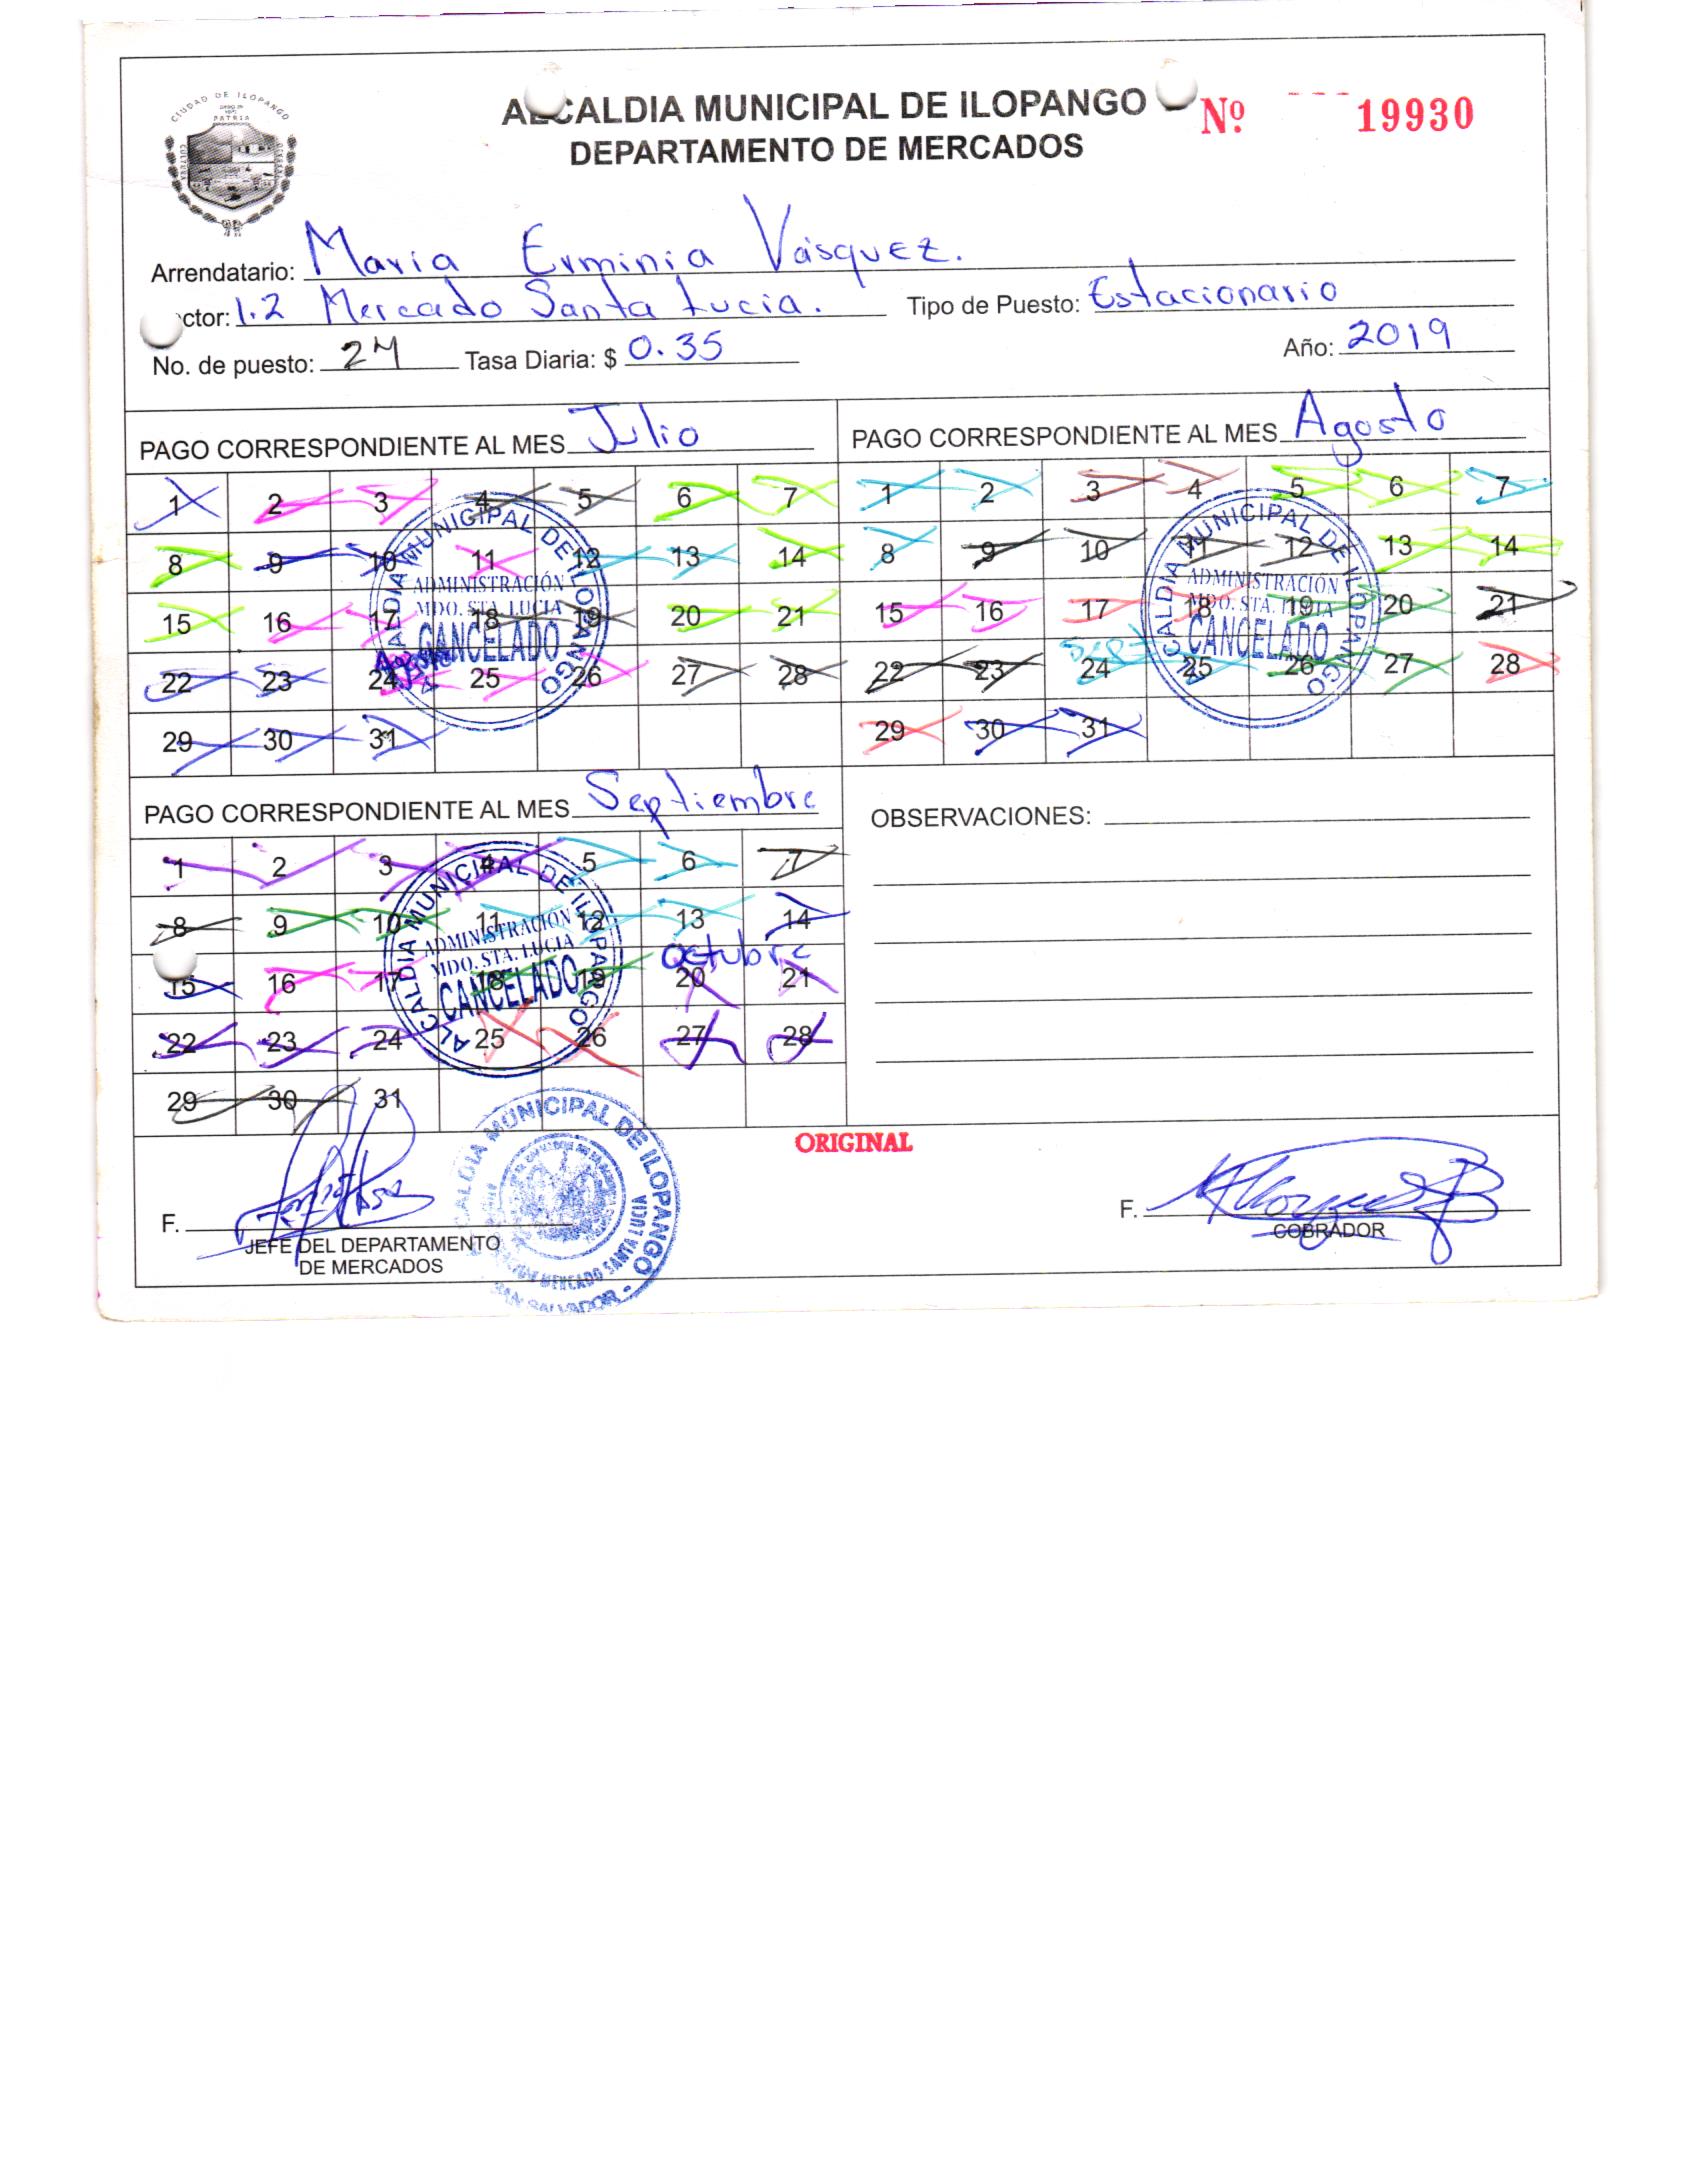 CIUDAD DE ILOPANGO
PATRIA
CULTURA
ALCALDIA MUNICIPAL DE ILOPANGO
Nº 19930
DEPARTAMENTO DE MERCADOS
Arrendatario: Maria Erminia Vásquez.
ctor: 1.2 Mercado Santa Lucia. Tipo de Puesto: Estacionario
No. de puesto: 24 Tasa Diaria: $ 0.35 Año: 2019
PAGO CORRESPONDIENTE AL MES Julio
1 2 3 4 5 6 7
8 9 10 11 12 13 14
15 16 17 18 19 20 21
Agosto
22 23 24 25 26 27 28
29 30 31
ALCALDIA MUNICIPAL DE ILOPANGO
ADMINISTRACIÓN
MDO. STA. LUCIA
CANCELADO
PAGO CORRESPONDIENTE AL MES Agosto
1 2 3 4 5 6 7
8 9 10 11 12 13 14
15 16 17 18 19 20 21
Sept
22 23 24 25 26 27 28
29 30 31
ALCALDIA MUNICIPAL DE ILOPANGO
ADMINISTRACIÓN
MDO. STA. LUCIA
CANCELADO
PAGO CORRESPONDIENTE AL MES Septiembre
1 2 3 4 5 6 7
8 9 10 11 12 13 14
octubre
15 16 17 18 19 20 21
22 23 24 25 26 27 28
29 30 31
ALCALDIA MUNICIPAL DE ILOPANGO
ADMINISTRACIÓN
MDO. STA. LUCIA
CANCELADO
OBSERVACIONES:
ORIGINAL
F.
JEFE DEL DEPARTAMENTO
DE MERCADOS
ALCALDIA MUNICIPAL DE ILOPANGO
MERCADO SANTA LUCIA
SAN SALVADOR
F.
COBRADOR